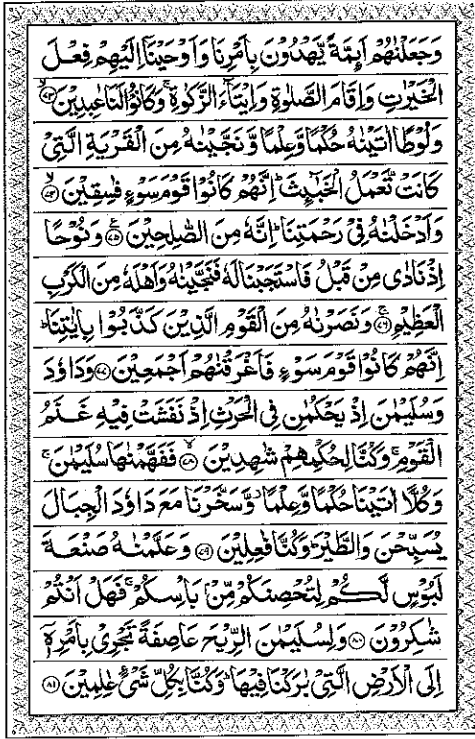 وَجَعَلْنٰهُمْ اَىِٕمَّةً يَّهْدُوْنَ بِاَمْرِنَا وَاَوْحَيْنَاۤ اِلَيْهِمْ فِعْلَ
الْخَيْرٰتِ وَاِقَامَ الصَّلٰوةِ وَاِيْتَآءَ الزَّكٰوةِ ۚ وَكَانُوْا لَنَا عٰبِدِيْنَ ۙ۝۷۳
وَلُوْطًا اٰتَيْنٰهُ حُكْمًا وَّعِلْمًا وَّنَجَّيْنٰهُ مِنَ الْقَرْيَةِ الَّتِيْ
كَانَتْ تَّعْمَلُ الْخَبٰٓىِٕثَ ؕ اِنَّهُمْ كَانُوْا قَوْمَ سَوْءٍ فٰسِقِيْنَ ۙ۝۷۴
وَاَدْخَلْنٰهُ فِيْ رَحْمَتِنَا ؕ اِنَّهٗ مِنَ الصّٰلِحِيْنَ ۝۷۵ ع وَنُوْحًا
اِذْ نَادٰى مِنْ قَبْلُ فَاسْتَجَبْنَا لَهٗ فَنَجَّيْنٰهُ وَاَهْلَهٗ مِنَ الْكَرْبِ
الْعَظِيْمِ ۚ۝۷۶ وَنَصَرْنٰهُ مِنَ الْقَوْمِ الَّذِيْنَ كَذَّبُوْا بِاٰيٰتِنَا ؕ
اِنَّهُمْ كَانُوْا قَوْمَ سَوْءٍ فَاَغْرَقْنٰهُمْ اَجْمَعِيْنَ ۝۷۷ وَدَاوٗدَ
وَسُلَيْمٰنَ اِذْ يَحْكُمٰنِ فِي الْحَرْثِ اِذْ نَفَشَتْ فِيْهِ غَنَمُ
الْقَوْمِ ۚ وَكُنَّا لِحُكْمِهِمْ شٰهِدِيْنَ ۙ۝۷۸ فَفَهَّمْنٰهَا سُلَيْمٰنَ ۚ
وَكُلًّا اٰتَيْنَا حُكْمًا وَّعِلْمًا ؗ وَّسَخَّرْنَا مَعَ دَاوٗدَ الْجِبَالَ
يُسَبِّحْنَ وَالطَّيْرَ ؕ وَكُنَّا فٰعِلِيْنَ ۝۷۹ وَعَلَّمْنٰهُ صَنْعَةَ
لَبُوْسٍ لَّكُمْ لِتُحْصِنَكُمْ مِّنْۢ بَاْسِكُمْ ۚ فَهَلْ اَنْتُمْ
شٰكِرُوْنَ ۝۸۰ وَلِسُلَيْمٰنَ الرِّيْحَ عَاصِفَةً تَجْرِيْ بِاَمْرِهٖۤ
اِلَى الْاَرْضِ الَّتِيْ بٰرَكْنَا فِيْهَا ؕ وَكُنَّا بِكُلِّ شَيْءٍ عٰلِمِيْنَ ۝۸۱